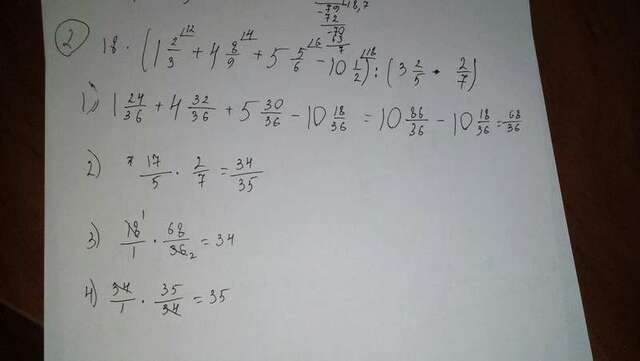 -79 18,7
72
-70
63
7
2) 18 · (1 2/3 + 4 8/9 + 5 5/6 - 10 1/2) : (3 2/5 · 2/7)
1) 1 24/36 + 4 32/36 + 5 30/36 - 10 18/36 = 10 86/36 - 10 18/36 = 68/36
2) 17/5 · 2/7 = 34/35
3) 18/1 · 68/36 = 34
4) 34/1 · 35/34 = 35